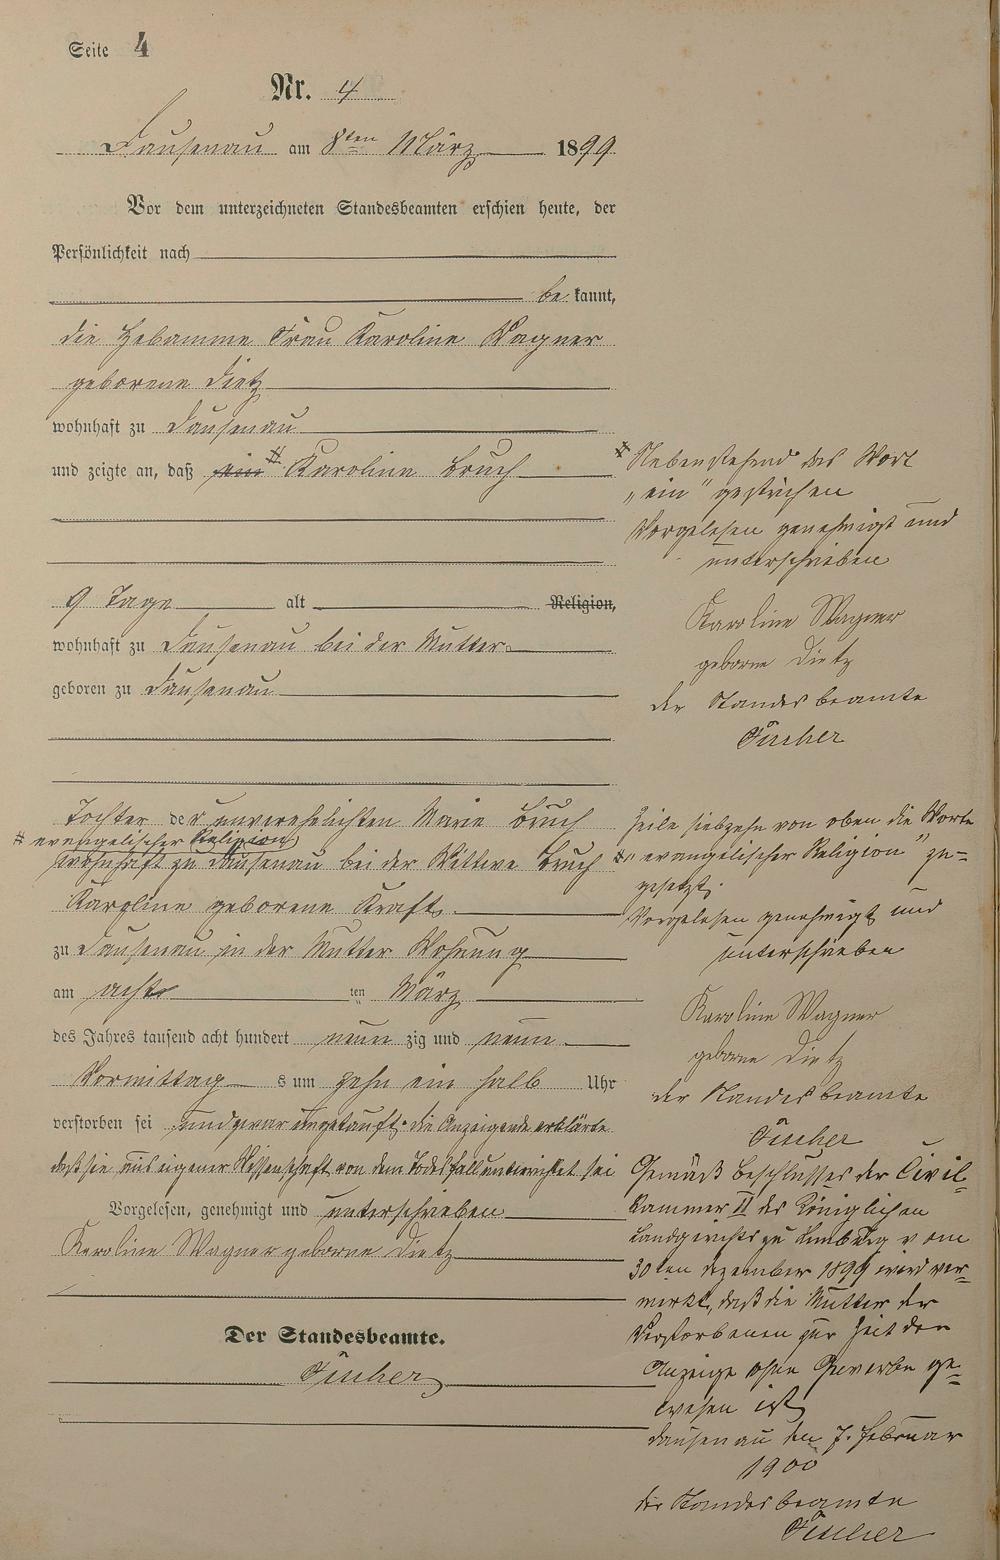 Seite 4
Nr. 4
Dausenau am 8ten März 1899
Vor dem unterzeichneten Standesbeamten erschien heute, der
Persönlichkeit nach
be kannt,
die Hebamme Frau Karoline Wagner
geborene Dietz
wohnhaft zu Dausenau
und zeigte an, daß ein # Karoline Bruch
9 Tage alt Religion,
wohnhaft zu Dausenau bei der Mutter
geboren zu Dausenau
Tochter der unverehelichten Marie Bruch
# evangelischer Religion
wohnhaft zu Dausenau bei der Wittwe Bruch
Karoline geborene Kraft.
zu Dausenau in der Mutter Wohnung
am acht ten März
des Jahres tausend acht hundert neun zig und neun
Vormittag s um zehn ein halb Uhr
verstorben sei und zwar ungetauft. die Anzeigende erklärte
daß sie aus eigener Wissenschaft von dem Todesfall unterrichtet sei
Vorgelesen, genehmigt und unterschrieben
Karoline Wagner geborne Dietz
Der Standesbeamte.
Fischer
# Nebenstehend das Wort
„ein" gestrichen
Vorgelesen genehmigt und
unterschrieben
Karoline Wagner
geborne Dietz
der Standesbeamte
Fischer
Zeile siebzehn von oben die Worte
# „evangelischer Religion" zu=
gesetzt.
Vorgelesen genehmigt und
unterschrieben
Karoline Wagner
geborne Dietz
der Standesbeamte
Fischer
Gemäß Beschlusses der Civil=
kammer II des Königlichen
Landgerichts zu Limburg vom
30ten Dezember 1899 wird ver=
merkt, daß die Mutter der
Verstorbenen zur Zeit der
Anzeige ohne Gewerbe ge=
wesen ist
Dausenau den 7. Februar
1900
der Standesbeamte
Fischer